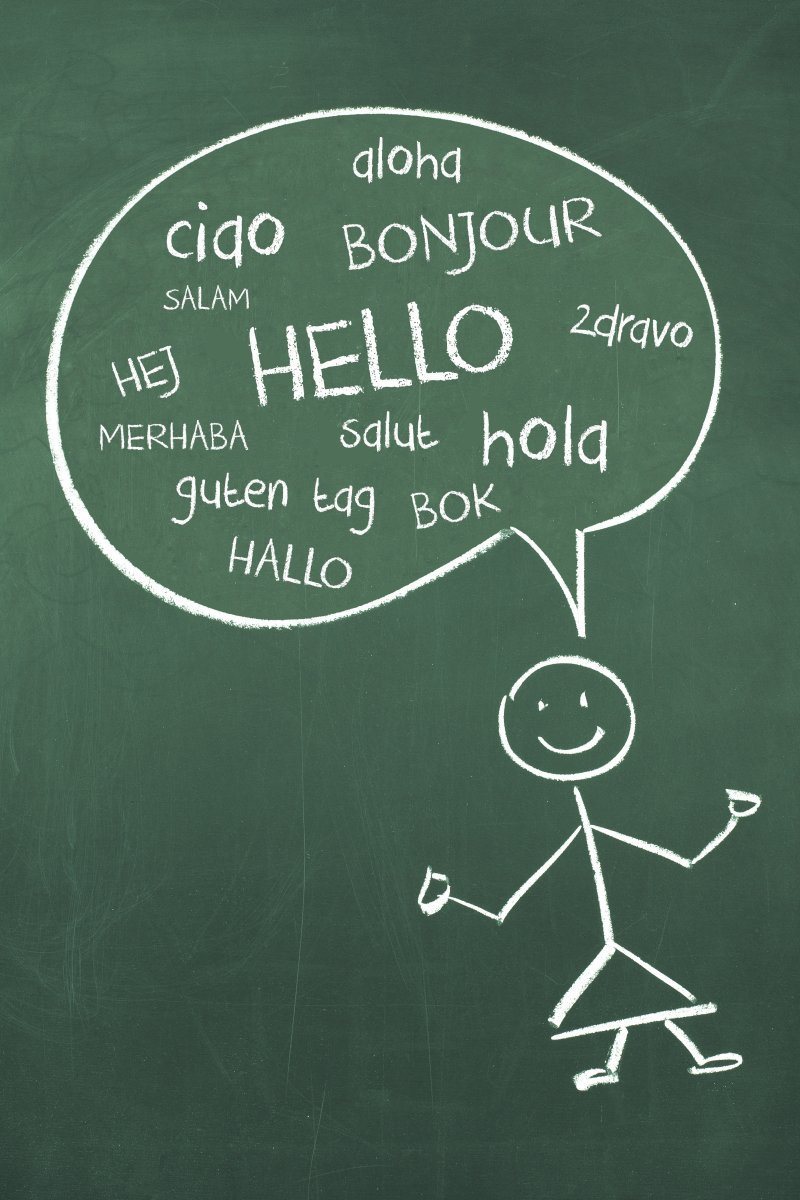 aloha
ciao BONJOUR
SALAM
HELLO
2dravo
HEJ
MERHABA
salut
hola
guten tag
BOK
HALLO